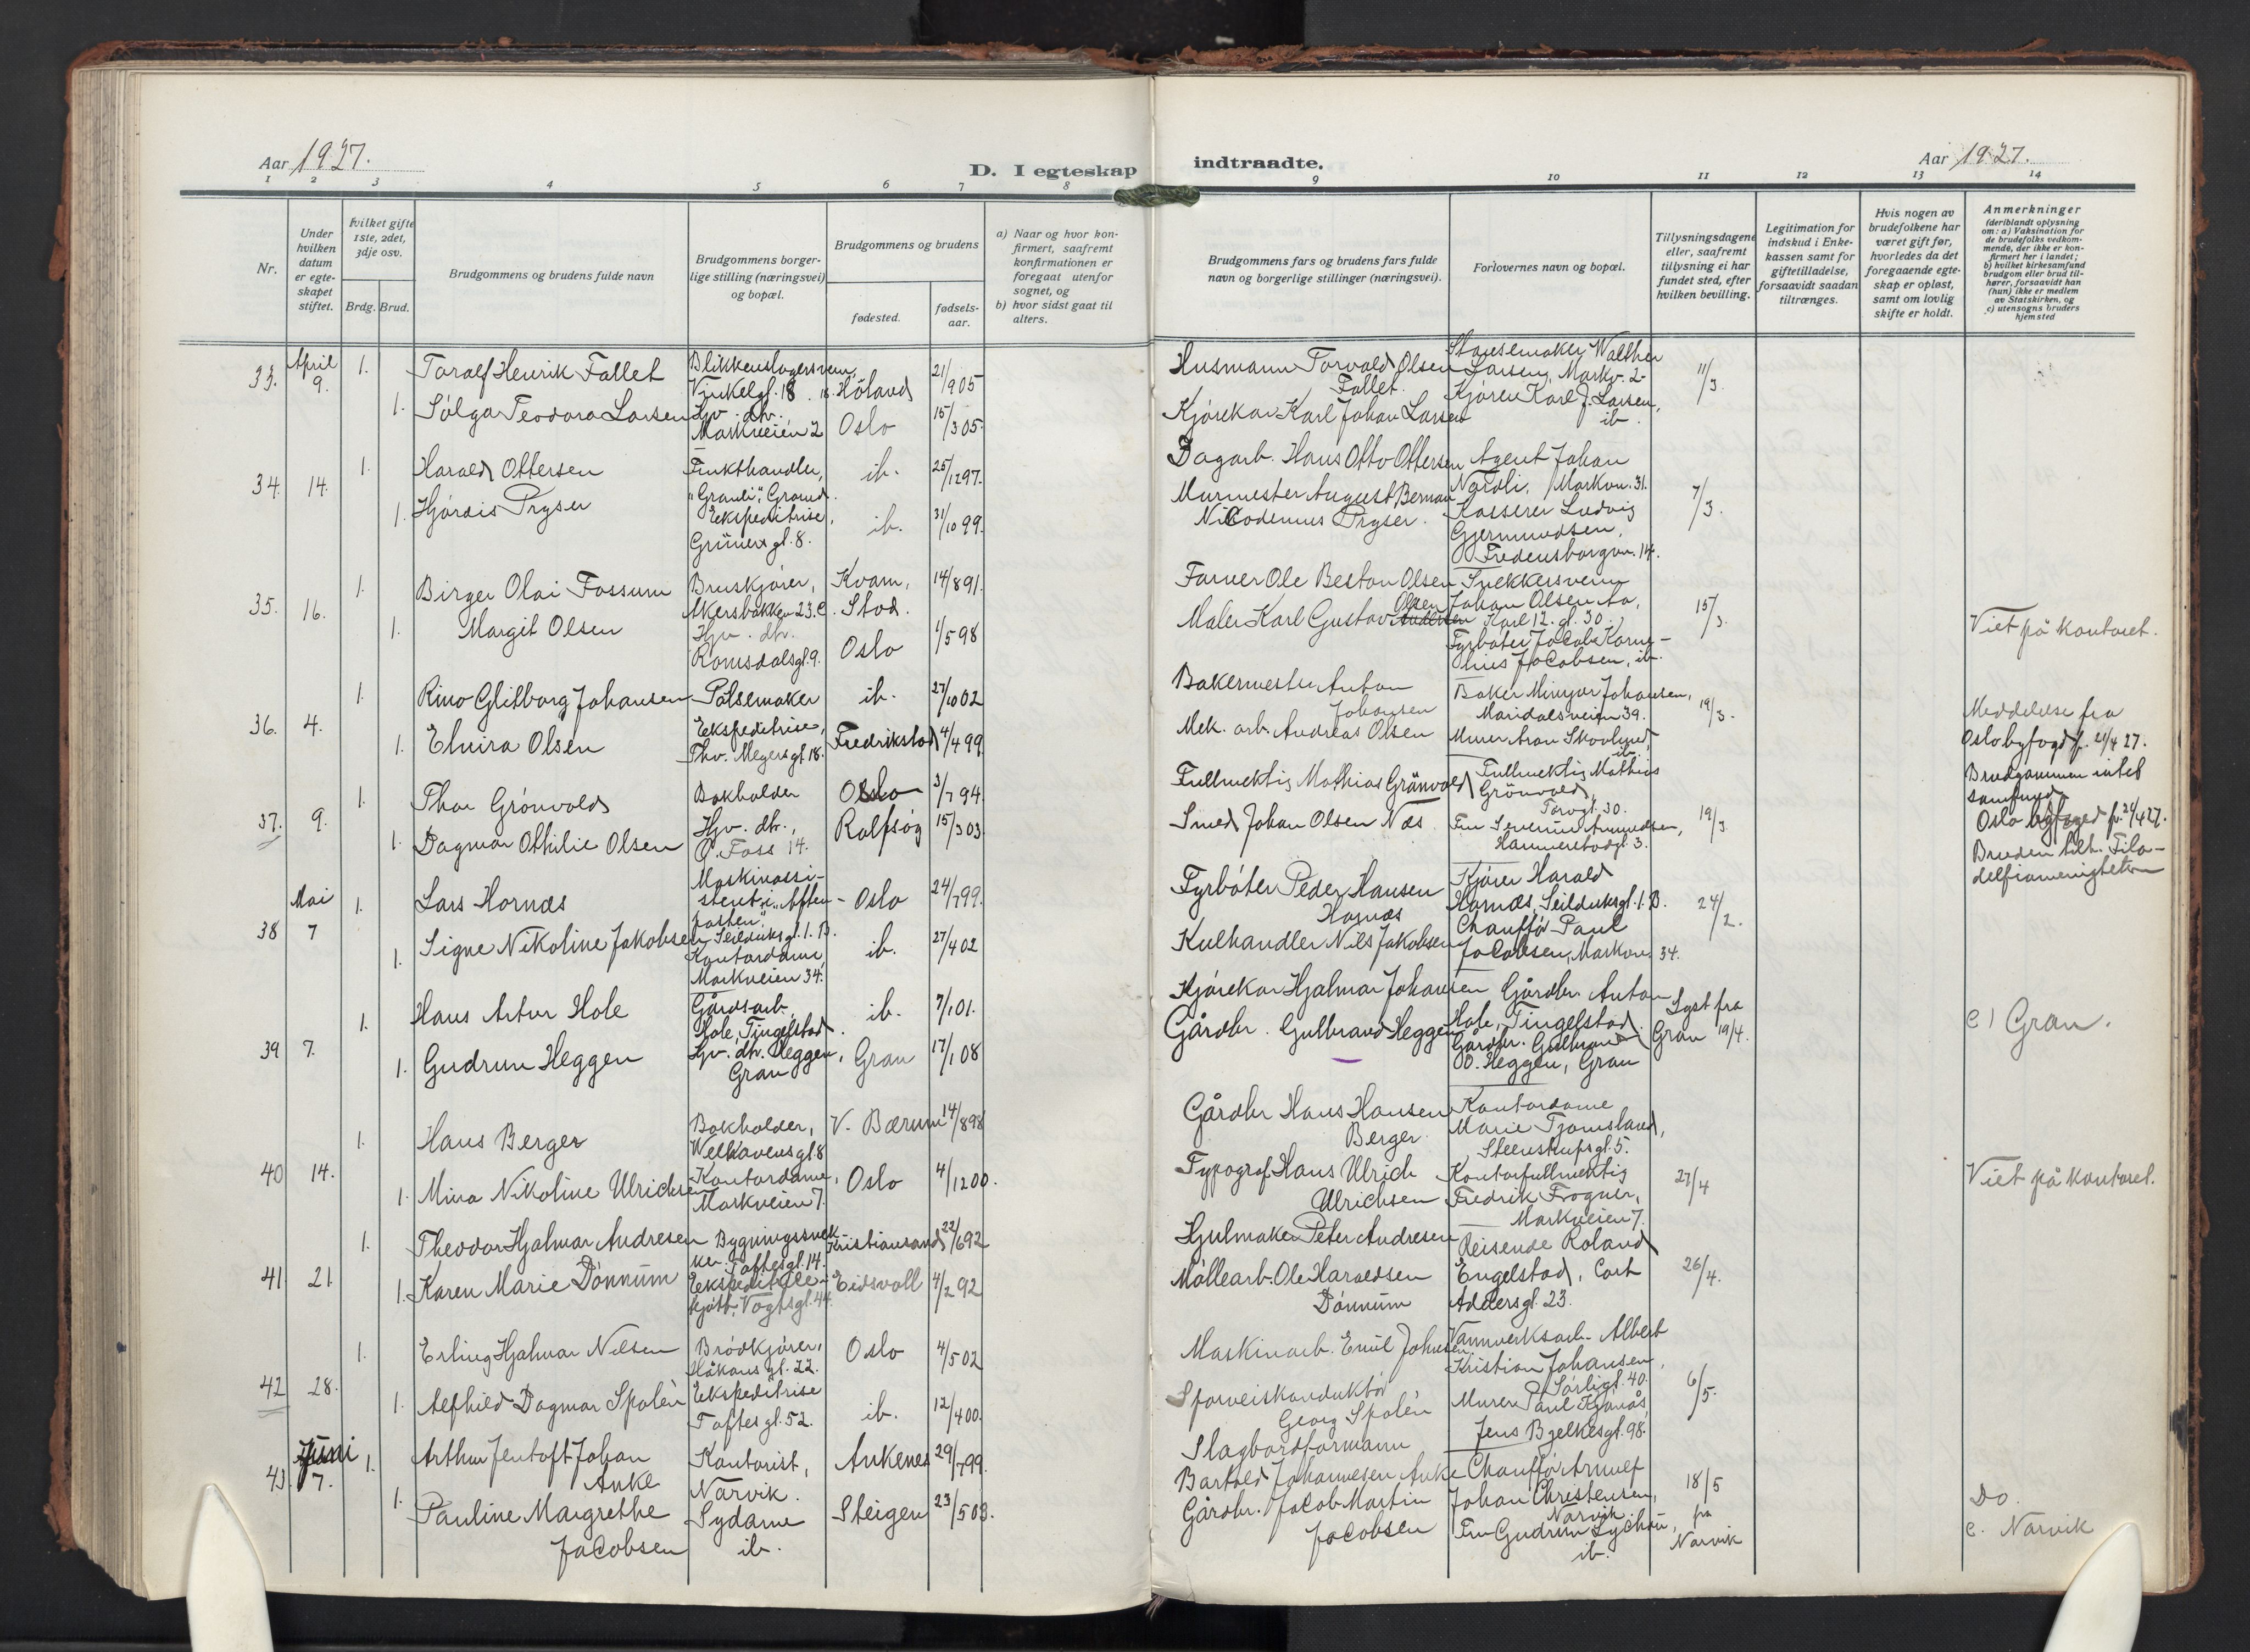 Aar 1927.
D. I egteskap indtraadte.
Aar 1927.
1 2 3 4 5 6 7 8 9 10 11 12 13 14
Nr.
Under hvilken datum er egteskapet stiftet.
Hvilket gifte 1ste, 2det, 3dje osv.
Brdg. Brud.
Brudgommens og brudens fulde navn
Brudgommens borgerlige stilling (næringsvei) og bopæl.
Brudgommens og brudens
fødested.
fødselsaar.
a) Naar og hvor konfirmert, saafremt konfirmationen er foregaat utenfor sognet, og
b) hvor sidst gaat til alters.
Brudgommens fars og brudens fars fulde navn og borgerlige stillinger (næringsvei).
Forlovernes navn og bopæl.
Tillysningsdagene eller, saafremt tillysning ei har fundet sted, efter hvilken bevilling.
Legitimation for indskud i Enkekassen samt for giftetilladelse, forsaavidt saadan tiltrænges.
Hvis nogen av brudefolkene har været gift før, hvorledes da det foregaaende egteskap er opløst, samt om lovlig skifte er holdt.
Anmerkninger (deriblandt oplysning om: a) Vaksination for de brudefolks vedkommende, der ikke er konfirmert her i landet; b) hvilket kirkesamfund brudgom eller brud tilhører, forsaavidt han (hun) ikke er medlem av Statskirken, og c) utensogns bruders hjemsted
33. April 9. 1. Toralf Henrik Fallet
Blikkenslagersvenn, Vinkelgt. 18
Höland 21/9 05
1. Sólga Teodora Larsen
Hjv. dtr. Markveien 2
Oslo 15/3 05.
Husmann Torvald Olsen Fallet.
Kjörekar Karl Johan Larsen
Walther Larsen, Markv. 2
Kjörer Karl J. Larsen, ib.
11/3.
34. 14. 1. Harald Ottersen
Frukthandler, "Granli", Grorud.
ib. 25/12 97.
1. Hjördis Pryser
Ekspeditrise, Grünersgt. 8.
ib. 31/10 99.
Dagarb. Hans Otto Ottersen
Murmester August Bernau Nicodemus Pryser.
Agent Johan Nordli, Markvn. 31.
Kasserer Ludvig Gjermundsen, Fredensborgvn. 14.
7/3.
35. 16. 1. Birger Olai Fossum
Bruskjörer, Akersbakken 23.C.
Kvam, Stod. 14/8 91.
1. Margit Olsen
Hjv. dtr. Romsdalsgt. 9.
Oslo 1/5 98
Farver Ole Bestou Olsen
Maler Karl Gustav Olsen
Snekkersvenn Johan Olsen Aa, Karl 12. gt. 30.
Fyrböter Jacob Kornelius Jacobsen, ib.
15/3.
Viet på kontoret.
36. 4. 1. Rino Glitborg Johansen
Pölsemaker
ib. 27/10 02
1. Elvira Olsen
Ekspeditrise, Thv. Meyersgt. 18.
Fredrikstad 4/4 99.
Bakermester Anton Johansen
Mek. arb. Andreas Olsen
Baker Mingar Johansen, Maridalsveien 39.
Murer Aron Skovlund, ib.
19/3.
Meddelelse fra Oslo byfogd p. 21/4 27.
Brudgommen intet samfund.
37. 9. 1. Thor Grönvold
Bokholder
Oslo 3/7 94.
1. Dagmar Othilie Olsen
Hjv. dtr., Ö. Foss 14.
Rolfsöy 15/3 03
Fullmektig Mathias Grönvold
Smed Johan Olsen Næs
Fullmektig Mathias Grönvold, Torvgt. 30.
Fru Severine Amundsen, Hammerstadgt. 3.
19/3.
Oslo byfoged p. 21/4 27.
Bruden tilh. Filadelfiamenigheten
38 Mai 7 1. Lars Hornæs
Maskinassistent i "Aftenposten", Seilduksgt. 1. B.
Oslo 24/7 99.
1. Signe Nikoline Jakobsen
Kontordame, Markveien 34.
ib. 27/4 02
Fyrböter Peder Hansen Hornæs
Kulhandler Nils Jakobsen
Kjörer Harald Hornæs, Seilduksgt. 1. B.
Chaufför Paul Jacobsen, Markvn. 34.
24/2.
39 7. 1. Hans Artur Hole
Gårdsarb., Hole, Tingelstad.
ib. 7/1 01.
1. Gudrun Heggen
Hjv. dtr. Heggen, Gran
Gran 17/1 08
Kjörekar Hjalmar Johansen
Gårdbr. Gulbrand Heggen
Gårdbr. Anton Hole, Tingelstad.
Gårdbr. Gulbrand O. Heggen, Gran
Lyst fra Gran 19/4.
c) Gran.
40 14. 1. Hans Berger
Bokholder, Welhavensgt. 8
V. Bærum 14/8 98
1. Mina Nikoline Ulrichsen
Kontordame, Markveien 7.
Oslo 4/12 00.
Gårdbr Hans Hansen Berger
Typograf Hans Ulrich Ulrichsen
Kontordame Marie Tjomsland, Steenstrupsgt. 5.
Kontorfullmektig Fredrik Frogner, Markveien 7.
27/4
Viet på kontoret.
41 21 1. Theodor Hjalmar Andresen
Bygningssnekker. Toftesgt. 14.
Kristiansand 22/6 92
1. Karen Marie Dönnum
Vogtsgt. 44.
Eidsvoll 4/2 92
Hjulmaker Peter Andresen
Möllearb. Ole Haraldsen Dönnum
Reisende Roland Engelstad, Cort Addersgt. 23.
26/4.
42 28. 1. Erling Hjalmar Nilsen
Brödkjörer, Håkonsgt. 22.
Oslo 4/5 02
1. Alfhild Dagmar Spolèn
Ekspeditrise Toftesgt. 52.
ib. 12/4 00.
Maskinarb. Emil Johnsen
Sporveiskonduktör Georg Spolén
Vannverksarb. Albert Kristian Johansen, Sörligt. 40.
Murer Paul Kjönås, Jens Bjelkesgt. 98.
6/5.
43. Juni 7. 1. Arthur Jentoft Johan Anke
Kontorist, Narvik.
Ankenes 29/7 99.
1. Pauline Margrethe Jacobsen
Sydame ib.
Steigen 23/5 03.
Slagbordformann Bartold Johannesen Anke
Gårdbr. Jacob Martin Jacobsen
Chaufför Arnulf Johan Christensen, Narvik
Fru Gudrun Lychou, ib.
18/5 fra Narvik
Do.
c. Narvik